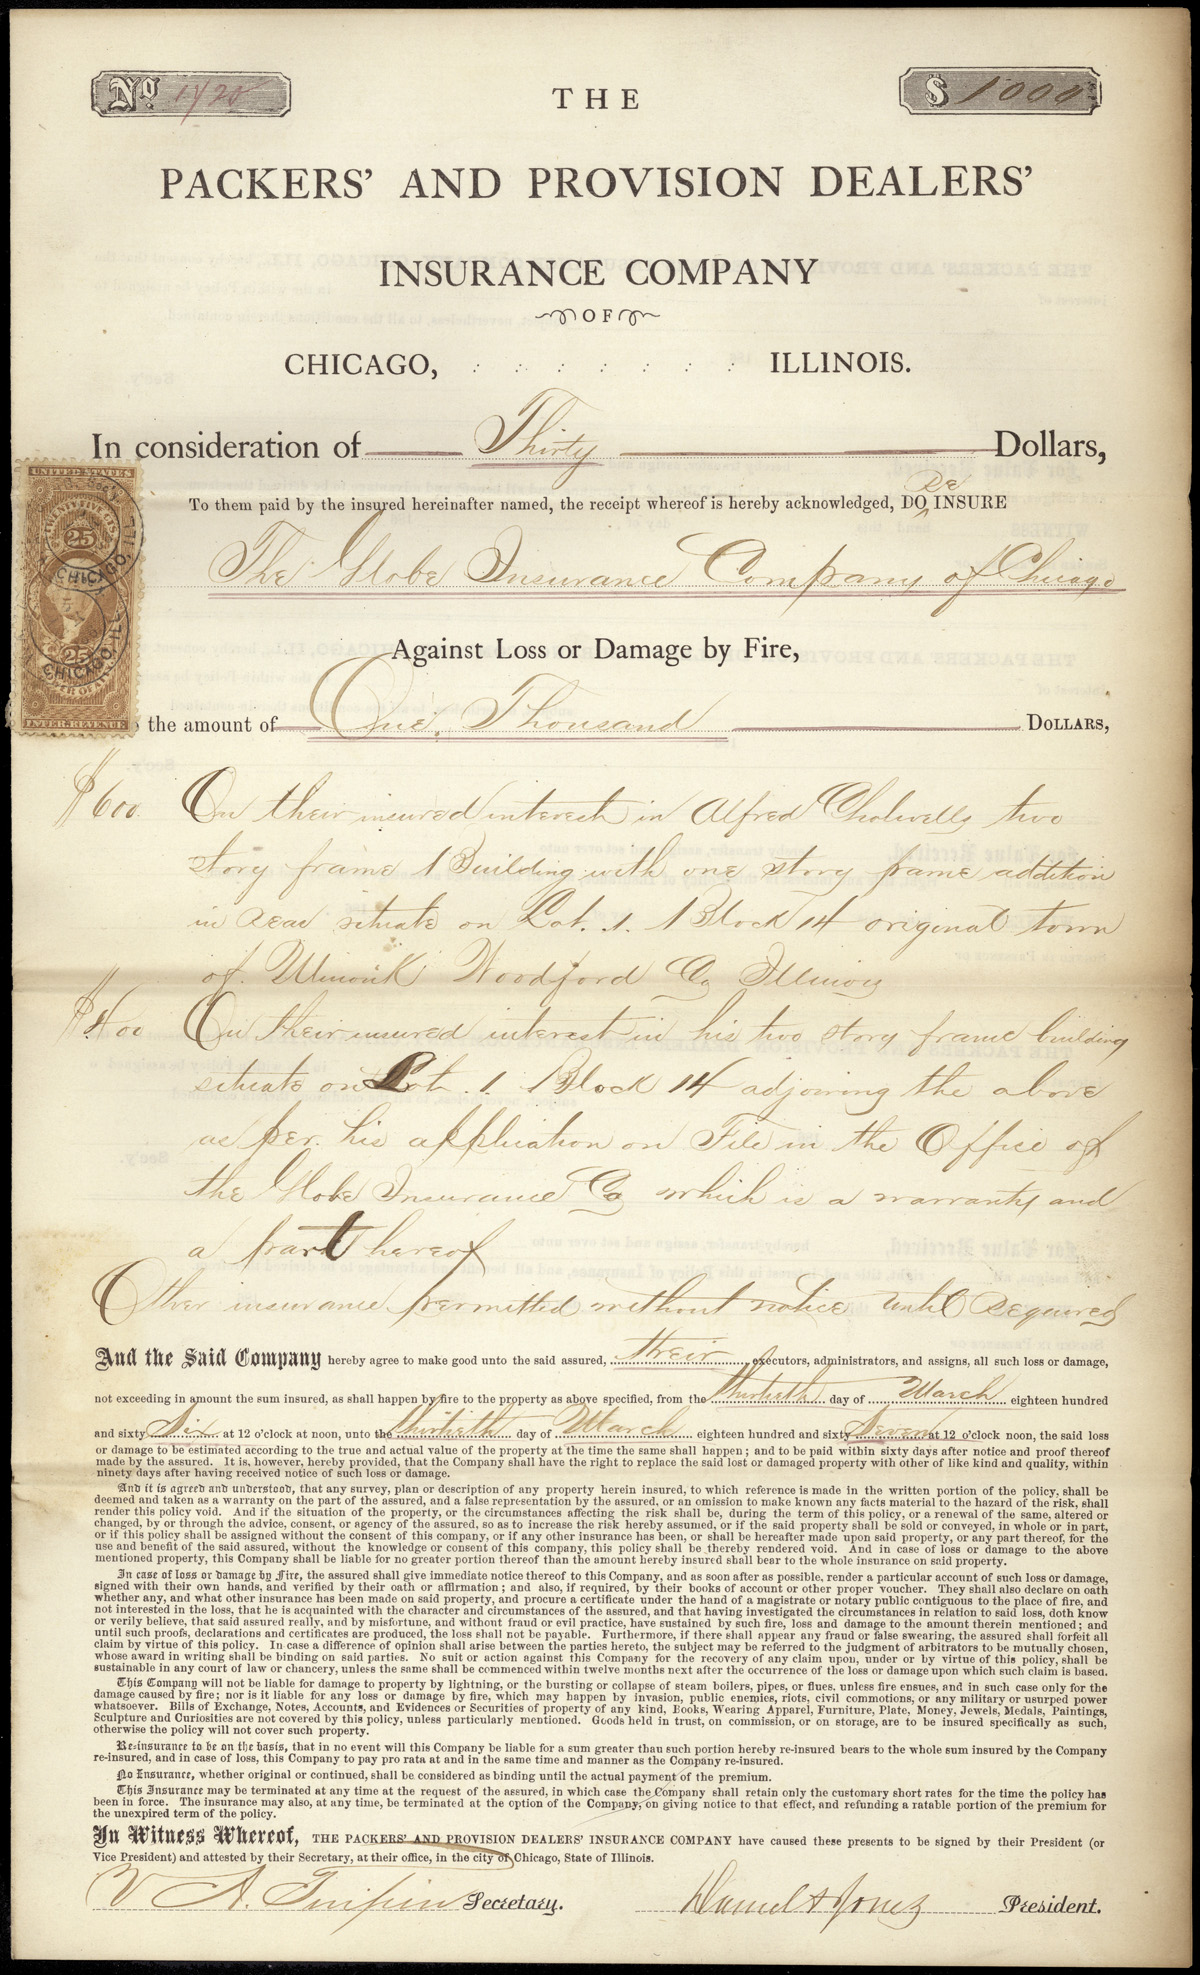 No. 1725
$ 1000
THE
PACKERS' AND PROVISION DEALERS'
INSURANCE COMPANY
OF
CHICAGO, ILLINOIS.
In consideration of Thirty Dollars,
To them paid by the insured hereinafter named, the receipt whereof is hereby acknowledged, DO RE INSURE
The Globe Insurance Company of Chicago
Against Loss or Damage by Fire,
the amount of One Thousand DOLLARS,
UNITED STATES
TWENTY FIVE CTS.
25
CHICAGO, ILL
CHICAGO
25
CHICAGO, ILL
INTER. REVENUE
$600. On their insured interest in Alfred Cholwells two
story frame Building with one story frame addition
in rear situate on Lot. 1. Block 14 original town
of Minonk Woodford Co Illinois
$400 On their insured interest in his two story frame building
situate on Lot. 1 Block 14 adjoining the above
as per. his application on File in the Office of
the Globe Insurance Co which is a warranty and
a part hereof
Other insurance permitted without notice until required
And the Said Company hereby agree to make good unto the said assured, their executors, administrators, and assigns, all such loss or damage,
not exceeding in amount the sum insured, as shall happen by fire to the property as above specified, from the thirtieth day of March eighteen hundred
and sixty Six at 12 o'clock at noon, unto the thirtieth day of March eighteen hundred and sixty Seven at 12 o'clock noon, the said loss
or damage to be estimated according to the true and actual value of the property at the time the same shall happen; and to be paid within sixty days after notice and proof thereof
made by the assured. It is, however, hereby provided, that the Company shall have the right to replace the said lost or damaged property with other of like kind and quality, within
ninety days after having received notice of such loss or damage.
And it is agreed and understood, that any survey, plan or description of any property herein insured, to which reference is made in the written portion of the policy, shall be
deemed and taken as a warranty on the part of the assured, and a false representation by the assured, or an omission to make known any facts material to the hazard of the risk, shall
render this policy void. And if the situation of the property, or the circumstances affecting the risk shall be, during the term of this policy, or a renewal of the same, altered or
changed, by or through the advice, consent, or agency of the assured, so as to increase the risk hereby assumed, or if the said property shall be sold or conveyed, in whole or in part,
or if this policy shall be assigned without the consent of this company, or if any other insurance has been, or shall be hereafter made upon said property, or any part thereof, for the
use and benefit of the said assured, without the knowledge or consent of this company, this policy shall be thereby rendered void. And in case of loss or damage to the above
mentioned property, this Company shall be liable for no greater portion thereof than the amount hereby insured shall bear to the whole insurance on said property.
In case of loss or damage by Fire, the assured shall give immediate notice thereof to this Company, and as soon after as possible, render a particular account of such loss or damage,
signed with their own hands, and verified by their oath or affirmation; and also, if required, by their books of account or other proper voucher. They shall also declare on oath
whether any, and what other insurance has been made on said property, and procure a certificate under the hand of a magistrate or notary public contiguous to the place of fire, and
not interested in the loss, that he is acquainted with the character and circumstances of the assured, and that having investigated the circumstances in relation to said loss, doth know
or verily believe, that said assured really, and by misfortune, and without fraud or evil practice, have sustained by such fire, loss and damage to the amount therein mentioned; and
until such proofs, declarations and certificates are produced, the loss shall not be payable. Furthermore, if there shall appear any fraud or false swearing, the assured shall forfeit all
claim by virtue of this policy. In case a difference of opinion shall arise between the parties hereto, the subject may be referred to the judgment of arbitrators to be mutually chosen,
whose award in writing shall be binding on said parties. No suit or action against this Company for the recovery of any claim upon, under or by virtue of this policy, shall be
sustainable in any court of law or chancery, unless the same shall be commenced within twelve months next after the occurrence of the loss or damage upon which such claim is based.
This Company will not be liable for damage to property by lightning, or the bursting or collapse of steam boilers, pipes, or flues, unless fire ensues, and in such case only for the
damage caused by fire; nor is it liable for any loss or damage by fire, which may happen by invasion, public enemies, riots, civil commotions, or any military or usurped power
whatsoever. Bills of Exchange, Notes, Accounts, and Evidences or Securities of property of any kind, Books, Wearing Apparel, Furniture, Plate, Money, Jewels, Medals, Paintings,
Sculpture and Curiosities are not covered by this policy, unless particularly mentioned. Goods held in trust, on commission, or on storage, are to be insured specifically as such,
otherwise the policy will not cover such property.
Re-insurance to be on the basis, that in no event will this Company be liable for a sum greater than such portion hereby re-insured bears to the whole sum insured by the Company
re-insured, and in case of loss, this Company to pay pro rata at and in the same time and manner as the Company re-insured.
No Insurance, whether original or continued, shall be considered as binding until the actual payment of the premium.
This Insurance may be terminated at any time at the request of the assured, in which case the Company shall retain only the customary short rates for the time the policy has
been in force. The insurance may also, at any time, be terminated at the option of the Company, on giving notice to that effect, and refunding a ratable portion of the premium for
the unexpired term of the policy.
In Witness Whereof, THE PACKERS' AND PROVISION DEALERS' INSURANCE COMPANY have caused these presents to be signed by their President (or
Vice President) and attested by their Secretary, at their office, in the city of Chicago, State of Illinois.
V. A. Turpin Secretary. Daniel A Jones President.